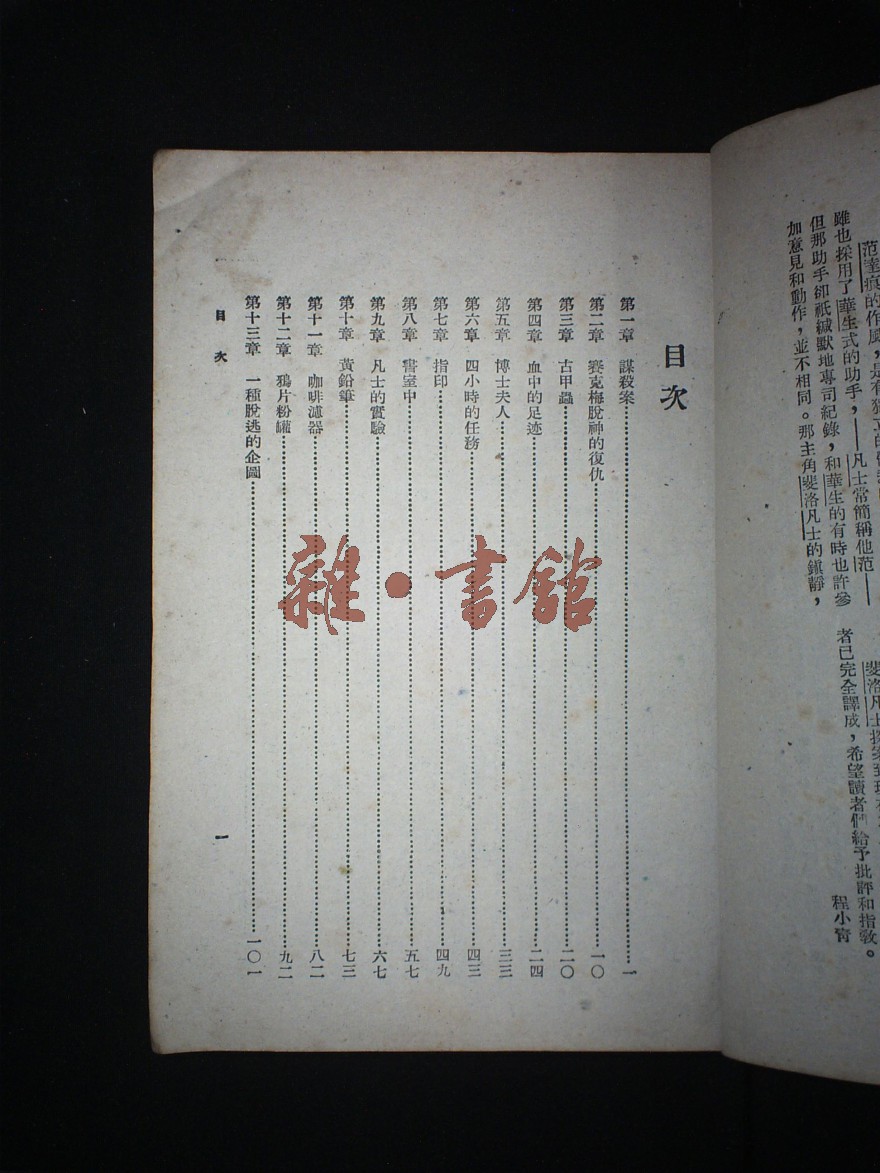 范達痕的作風，是有獨立的
雖也採用了華生式的助手，——凡士常簡稱他范——
但那助手卻祇緘默地專司紀錄，和華生的有時也許參
加意見和動作，並不相同。那主角斐洛凡士的鎮靜，
斐洛凡士探案到現在
者已完全譯成，希望讀者們給予批評和指教。
程小青
目次
第一章 謀殺案 一
第二章 賽克梅脫神的復仇 一〇
第三章 古甲蟲 二〇
第四章 血中的足迹 二四
第五章 博士夫人 三三
第六章 四小時的任務 四三
第七章 指印 四九
第八章 書室中 五七
第九章 凡士的實驗 六七
第十章 黃鉛筆 七三
第十一章 咖啡濾器 八二
第十二章 鴉片粉罐 九二
第十三章 一種脫逃的企圖 一〇一
目次 一
雜·書館